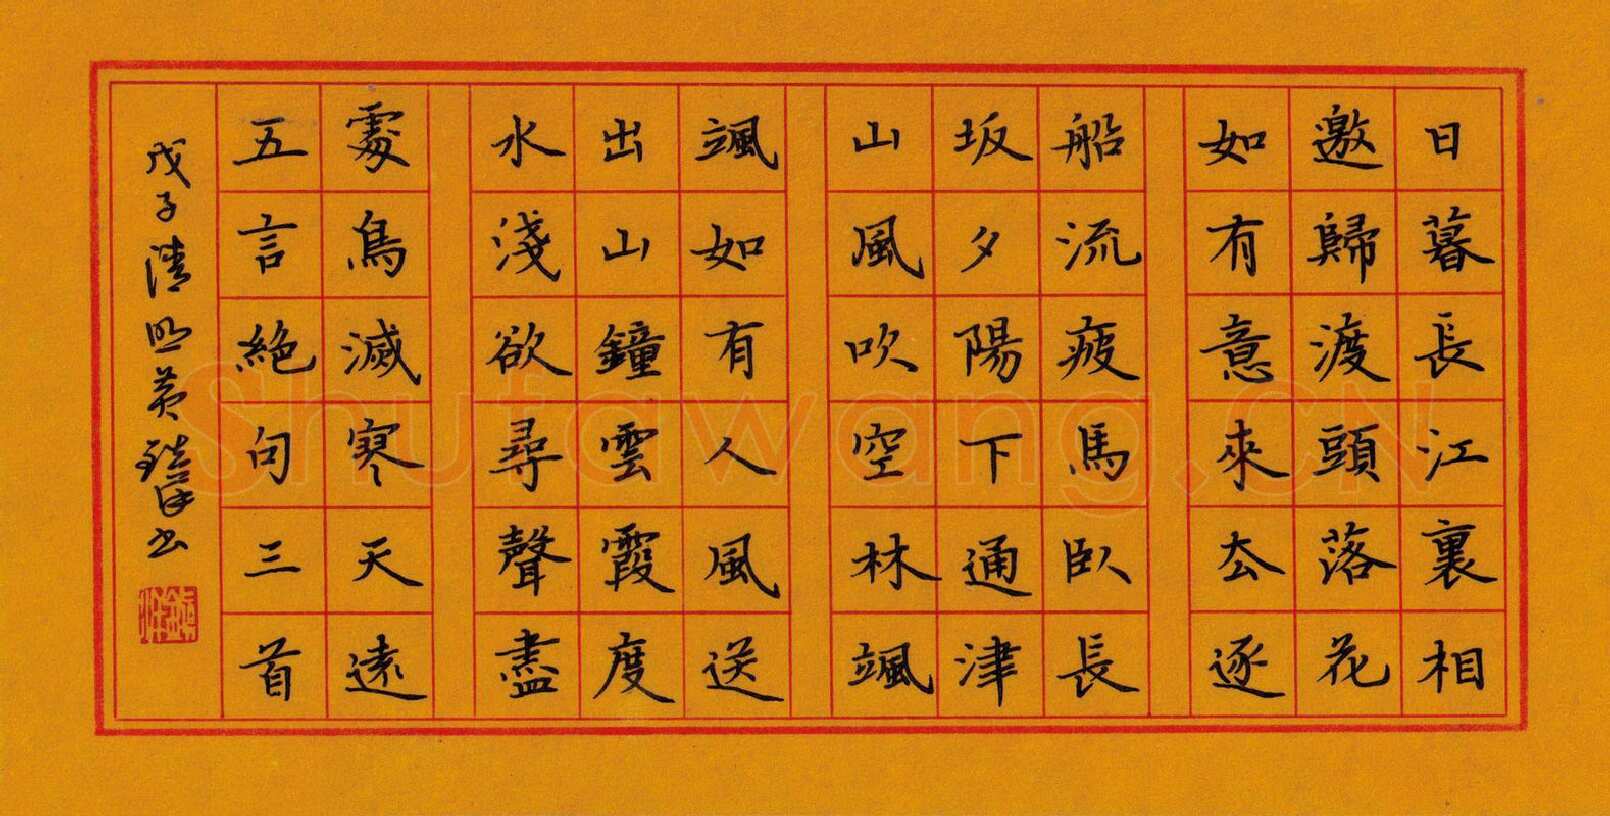 日暮長江裏相
邀歸渡頭落花
如有意來去逐
船流疲馬臥長
坂夕陽下通津
山風吹空林颯
颯如有人風送
出山鐘雲霞度
水淺欲尋聲盡
處鳥滅寒天遠
五言絕句三首
戊子清明黃書
Shufawang.CN